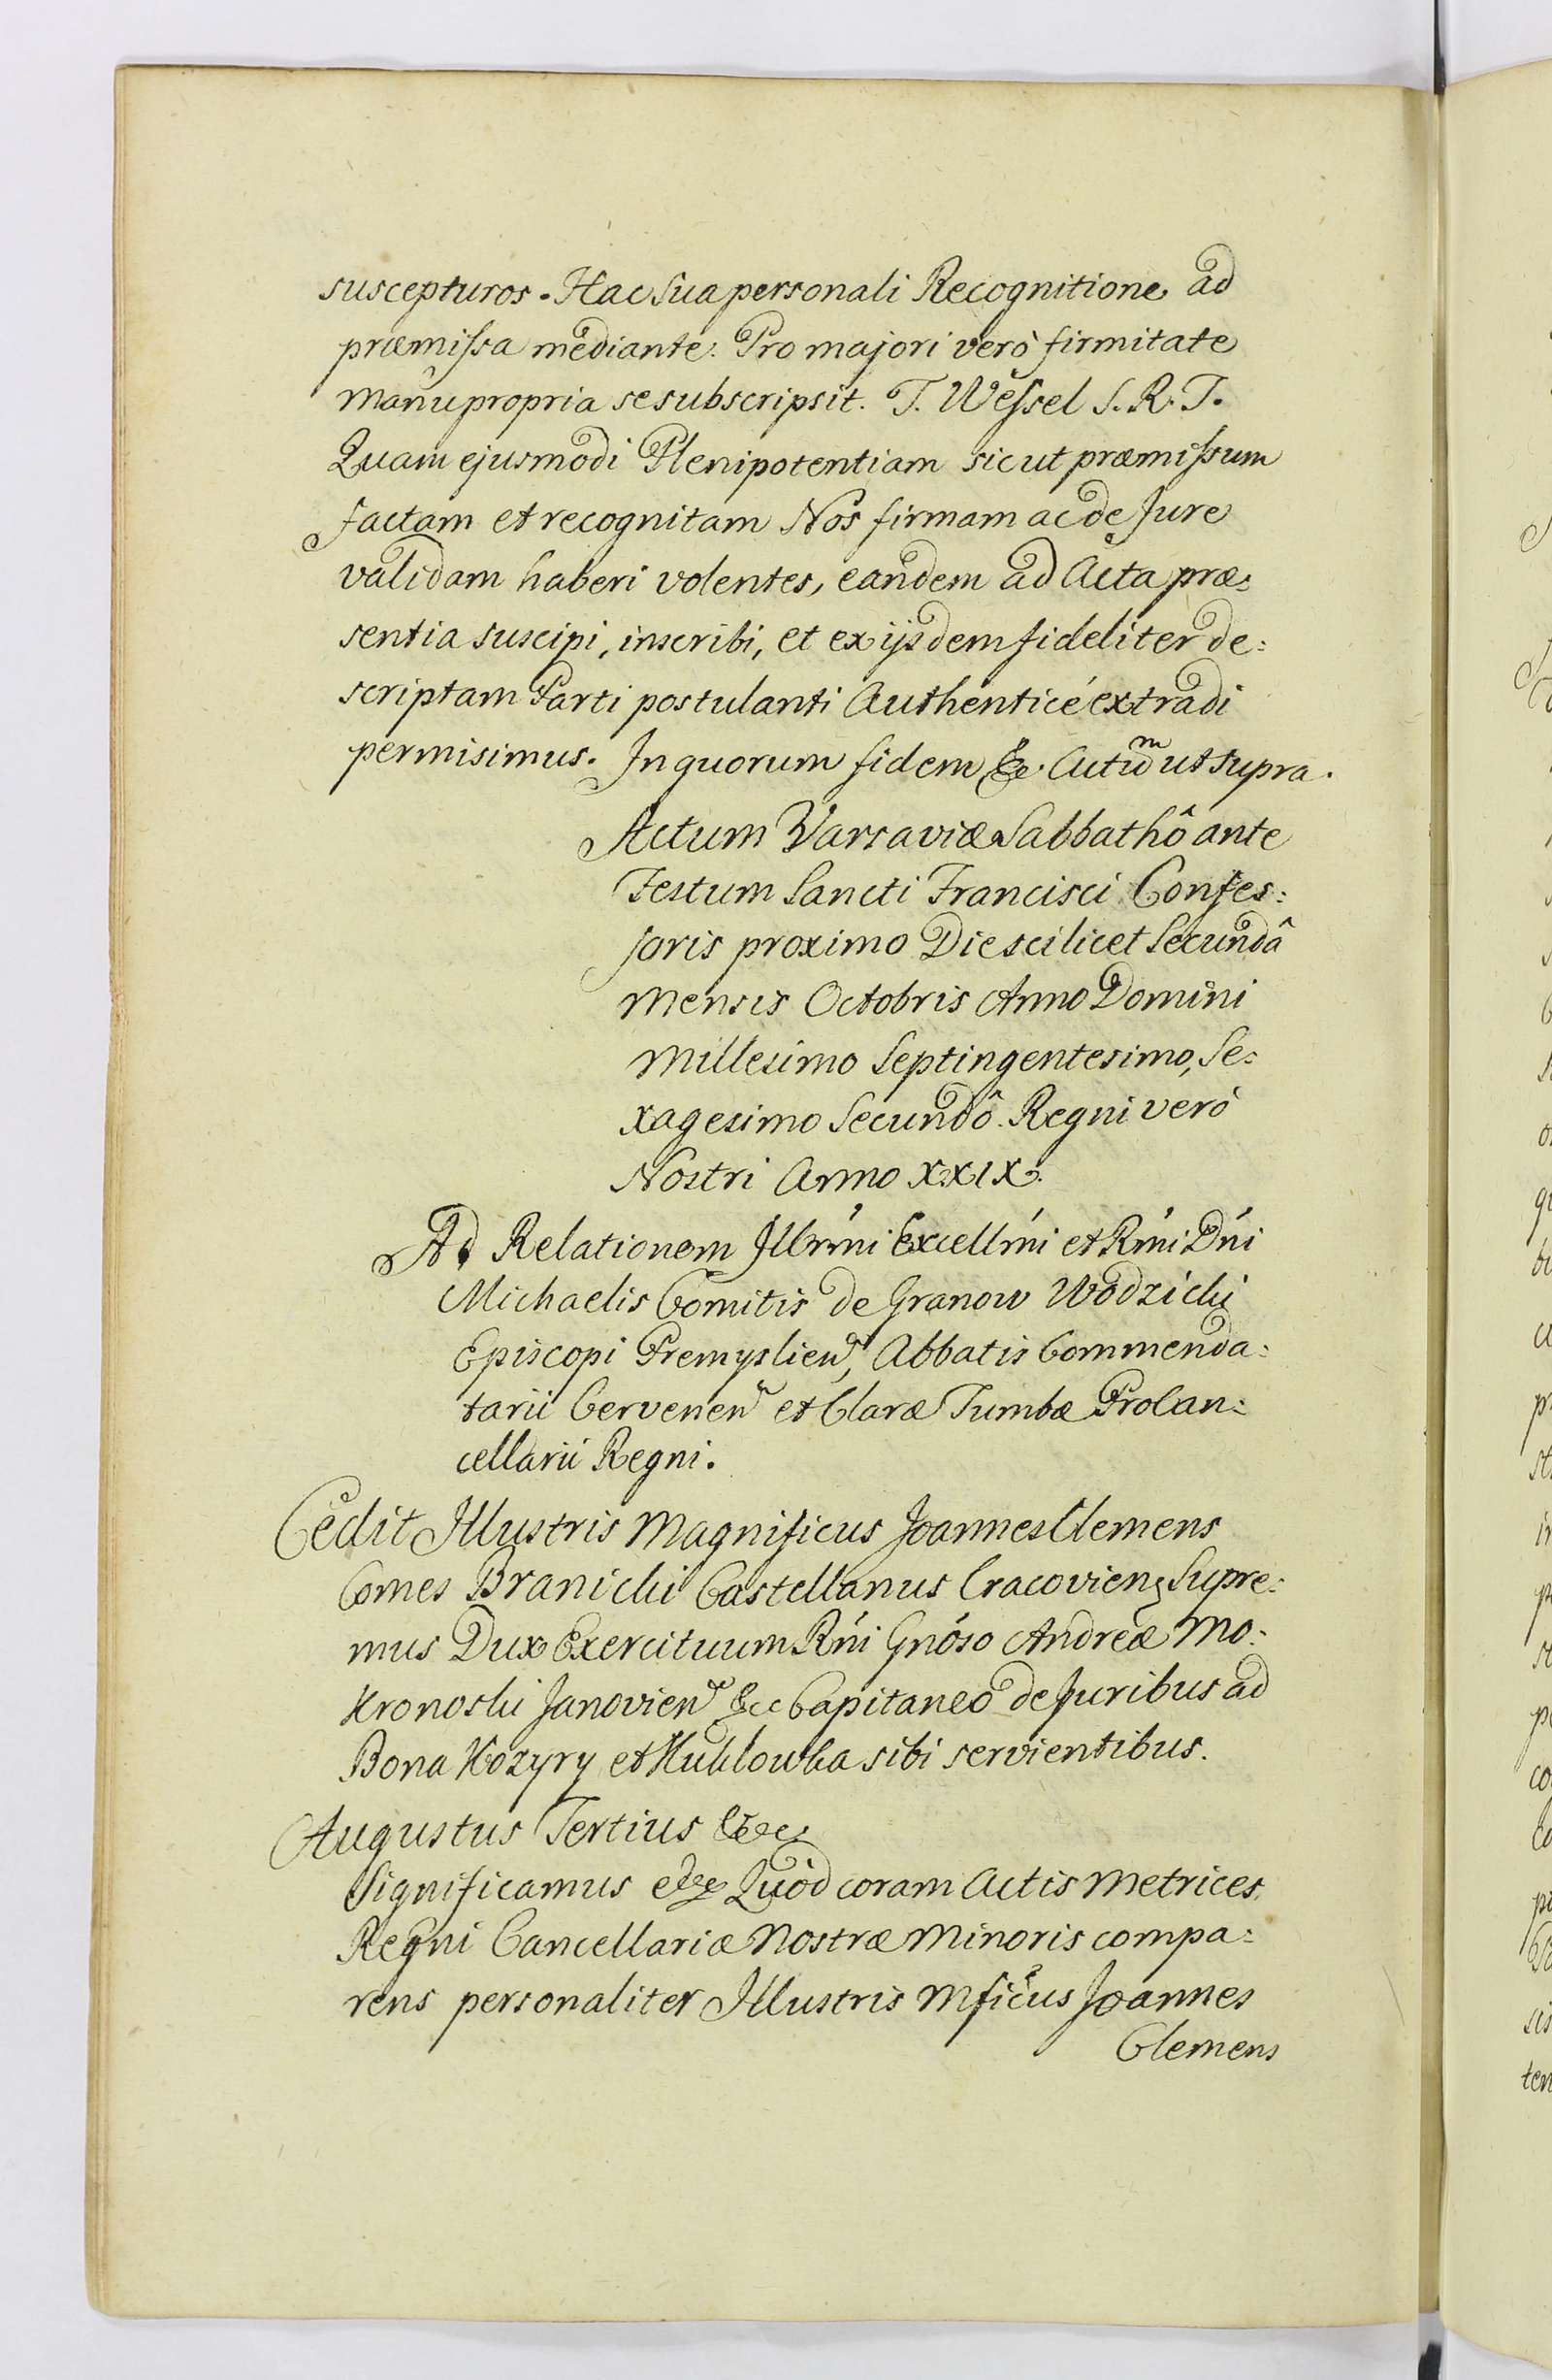 suscepturos. Hac sua personali Recognitione ad
præmissa mediante. Pro majori verò firmitate
manu propria se subscripsit. T. Wessel S. R. T.
Quam ejusmodi Plenipotentiam sicut præmissum
factam et recognitam Nos firmam ac de Jure
validam haberi volentes, eandem ad Acta præ:
sentia suscipi, inscribi, et ex ijsdem fideliter de:
scriptam Parti postulanti Authenticé extradi
permisimus. In quorum fidem &c. Actum ut supra.
Actum Varsaviæ Sabbathô ante
Festum Sancti Francisci Confes:
soris proximo Die scilicet Secundâ
Mensis Octobris Anno Domini
Millesimo Septingentesimo, Se:
xagesimo Secundô. Regni verò
Nostri Anno XXIX.
Ad Relationem Illrmi Excellmi et Rmi Dni
Michaelis Comitis de Granow Wodzicki
Episcopi Premyslien, Abbatis Commenda:
tarii Cervenen et Claræ Tumbæ ProCan:
cellarii Regni.
Cedit Illustris Magnificus Joannes Clemens
Comes Branicki Castellanus Cracovien, Supre:
mus Dux Exercituum Rni Gnóso Andreæ Mo:
kronoski Janovien &c Capitaneo de Juribus ad
Bona Kozyry et Kuklowka sibi servientibus.
Augustus Tertius &c
Significamus &c Quòd coram Actis Metrices
Regni Cancellariæ Nostræ Minoris compa:
rens personaliter Illustris Mficus Joannes
Clemens